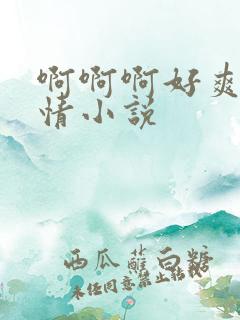 啊啊啊好爽
情小说
西瓜蘸白糖
未经同意禁止转载